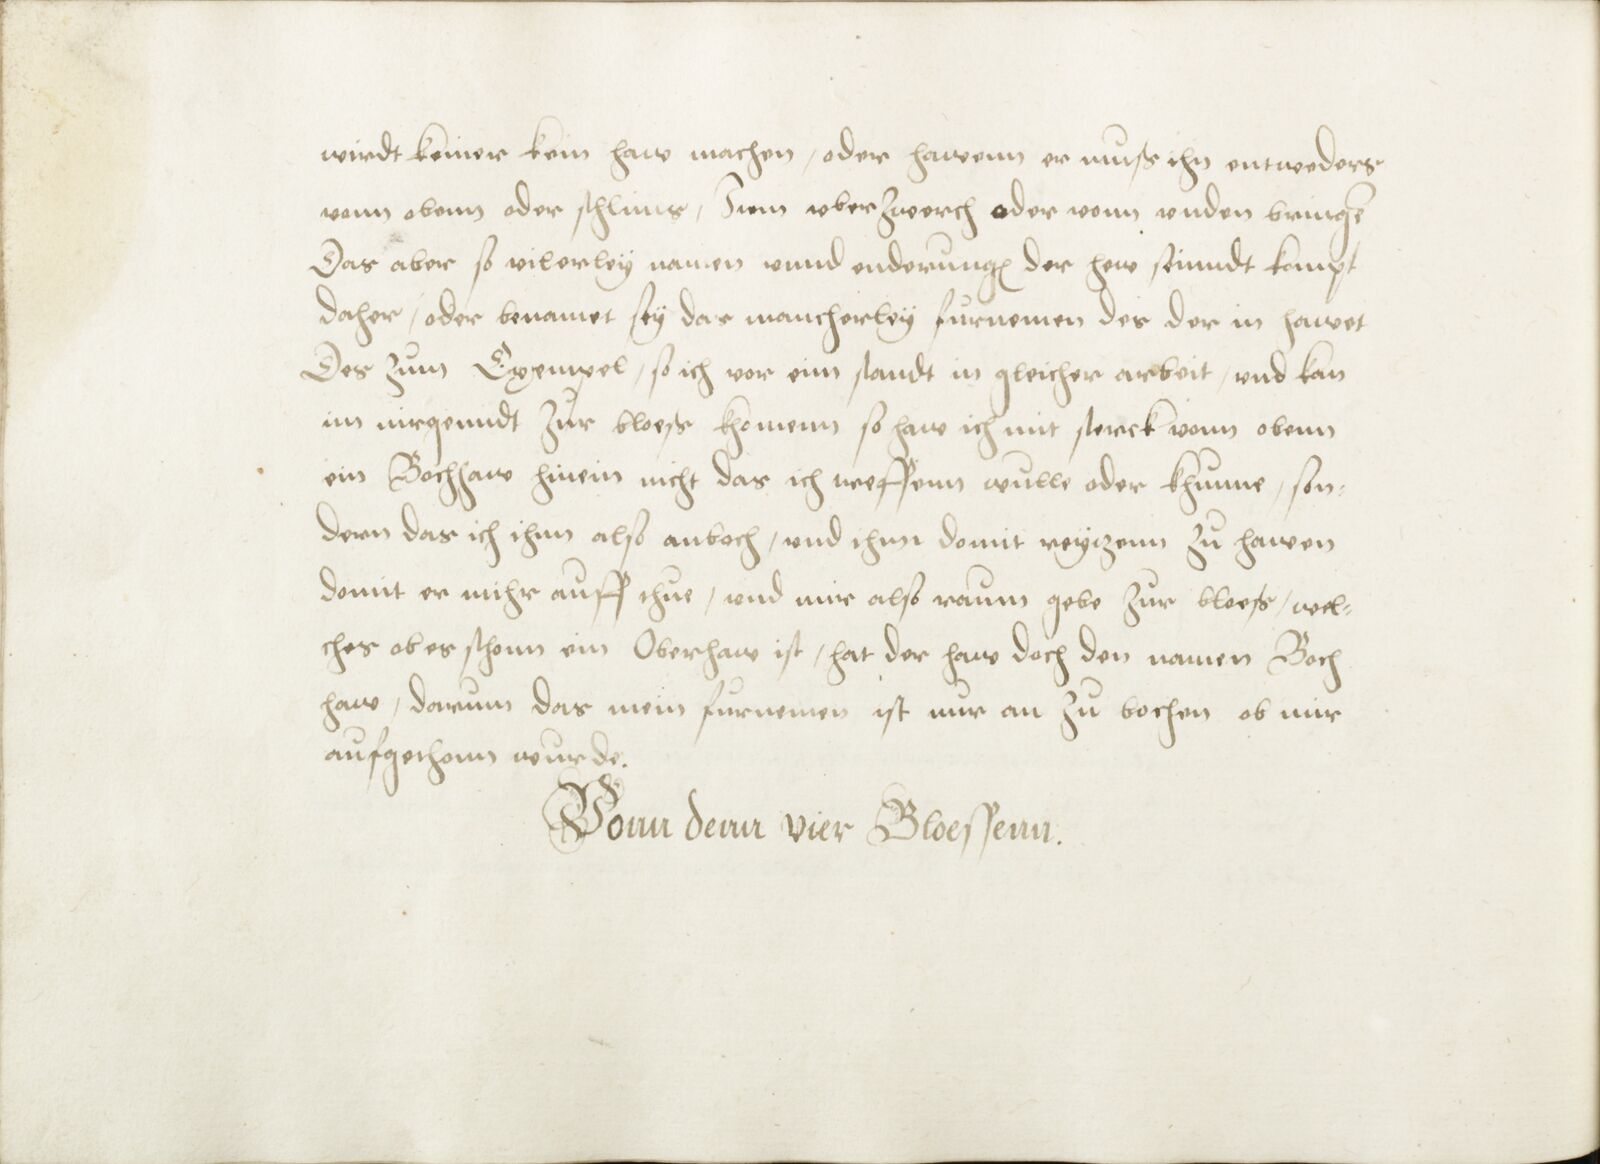 wirdt keiner kein haw machen / oder hawenn er muß ihn entweders
vonn obenn oder schlims / Item vberzwerch oder vonn vnden bringē
Das aber so vilerley namen vnnd enderung der hew seinndt kompt
daher / oder benamet sey das mancherley furnemen des der in hawet
Des zum Exempel / so ich vor eim standt in gleicher arbeit / vnd kan
im nirgenndt zur bloeß khomenn so haw ich mit sterck vonn obenn
ein Bochhaw hinein nicht das ich treffenn wulle oder khunne / son-
dern das ich ihnn also anboch / vnd ihnn domit reytzenn zu hawen
domit er mihr auff thue / vnd mir also raum gebe zur bloeß / wel-
ches ob es schonn ein Oberhaw ist / hat der haw doch den namen Boch
haw / darum das mein furnemen ist nur an zu bochen ob mir
aufgethonn wurde.
Vonn denn vier Bloessenn.